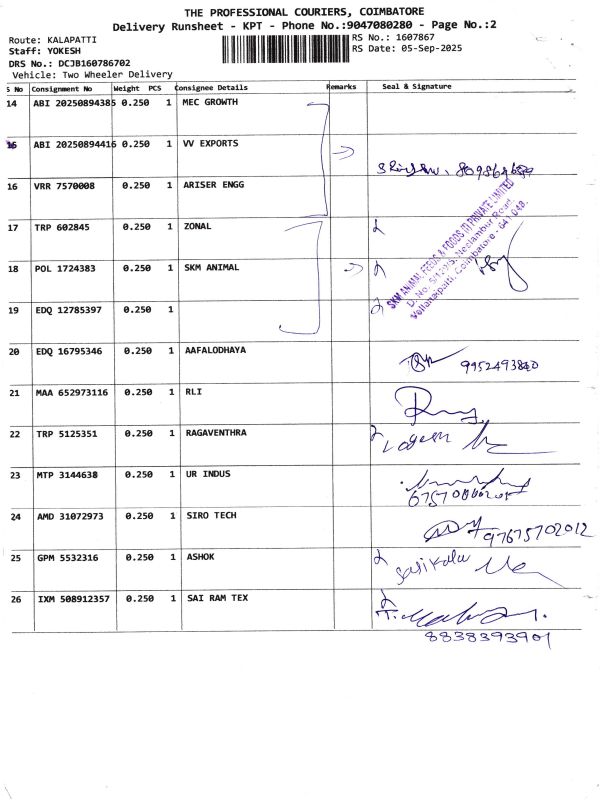 THE PROFESSIONAL COURIERS, COIMBATORE
Delivery Runsheet - KPT - Phone No.:9047080280 - Page No.:2
Route: KALAPATTI
RS No.: 1607867
Staff: YOKESH
RS Date: 05-Sep-2025
DRS No.: DCJB160786702
Vehicle: Two Wheeler Delivery
S No Consignment No Weight PCS Consignee Details Remarks Seal & Signature
14 ABI 20250894385 0.250 1 MEC GROWTH
15 ABI 20250894416 0.250 1 VV EXPORTS
16 VRR 7570008 0.250 1 ARISER ENGG
17 TRP 602845 0.250 1 ZONAL
18 POL 1724383 0.250 1 SKM ANIMAL
SKM ANIMAL FEEDS & FOODS (I) PRIVATE LIMITED
D. No. 5/139/5, Neelambur Road,
Vellanaipatti, Coimbatore - 641 048.
19 EDQ 12785397 0.250 1
20 EDQ 16795346 0.250 1 AAFALODHAYA
9952493840
21 MAA 652973116 0.250 1 RLI
22 TRP 5125351 0.250 1 RAGAVENTHRA
Logesh
23 MTP 3144638 0.250 1 UR INDUS
24 AMD 31072973 0.250 1 SIRO TECH
97675702012
25 GPM 5532316 0.250 1 ASHOK
Sasikala
26 IXM 508912357 0.250 1 SAI RAM TEX
8838393901